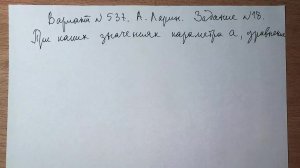 Вариант №537. А. Ларин. Задание №18.
При каких значениях параметра а, уравнение